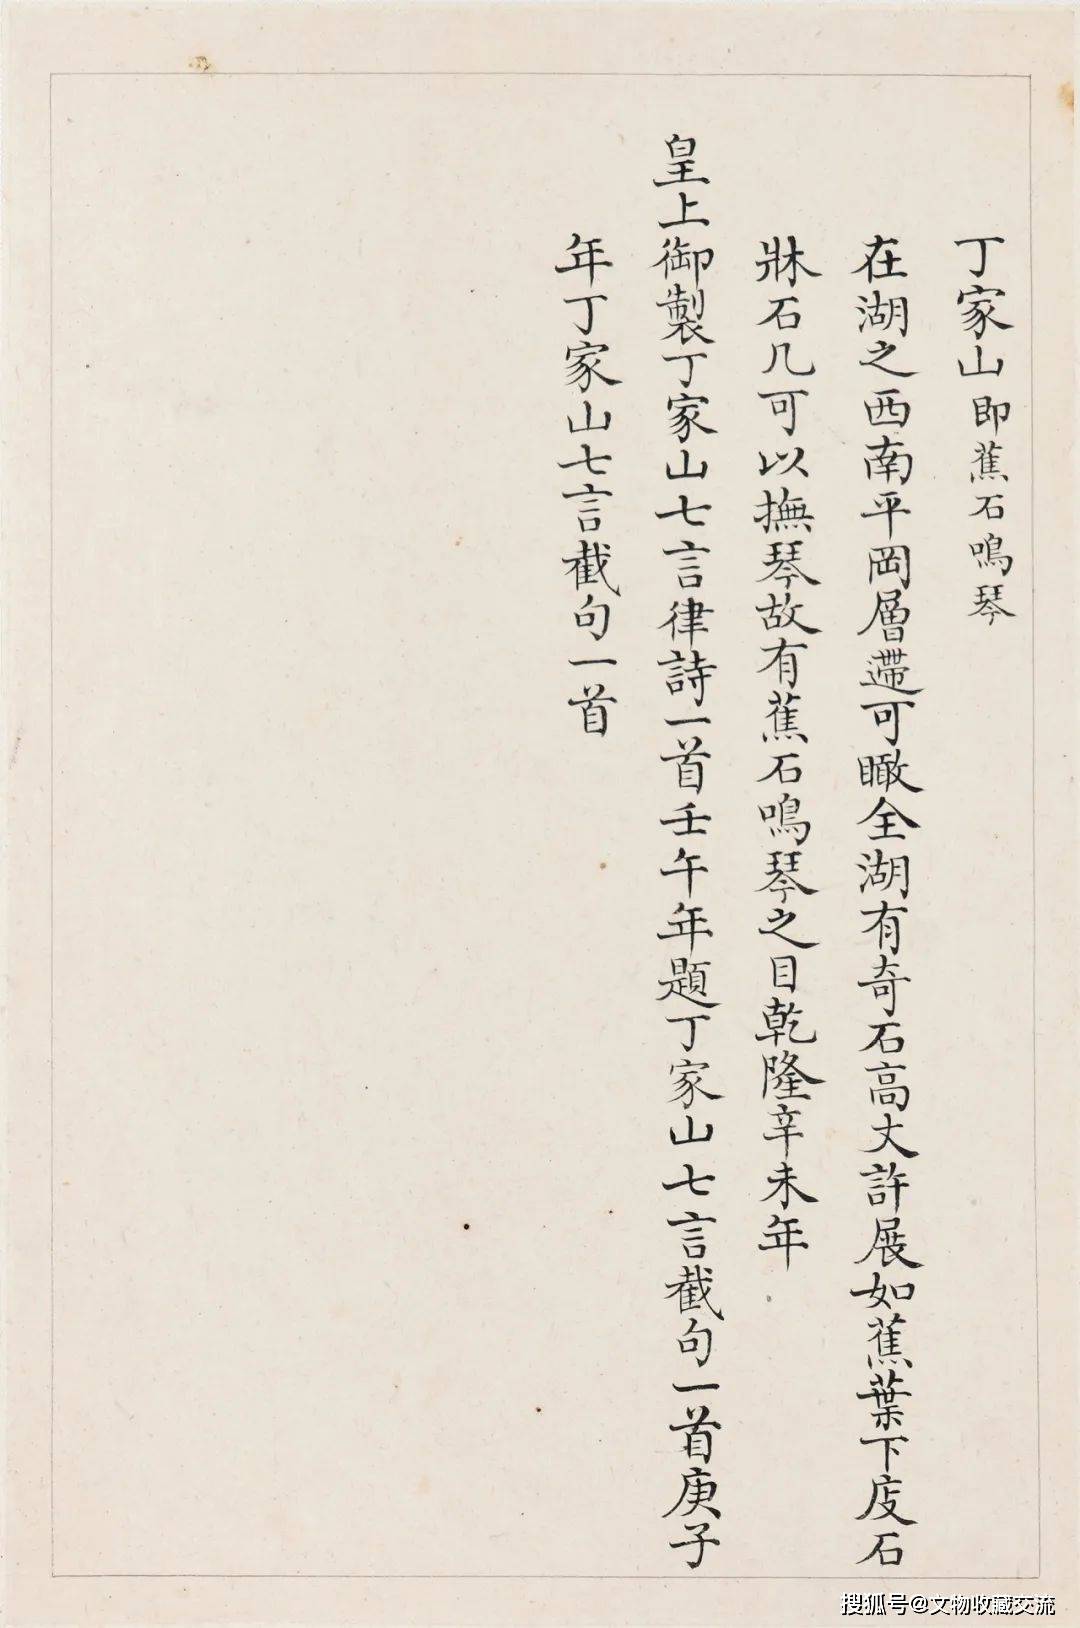 丁家山即蕉石鳴琴
在湖之西南平岡層遰可瞰全湖有奇石高丈許展如蕉葉下庋石
牀石几可以撫琴故有蕉石鳴琴之目乾隆辛未年
皇上御製丁家山七言律詩一首壬午年題丁家山七言截句一首庚子
年丁家山七言截句一首
搜狐号@文物收藏交流